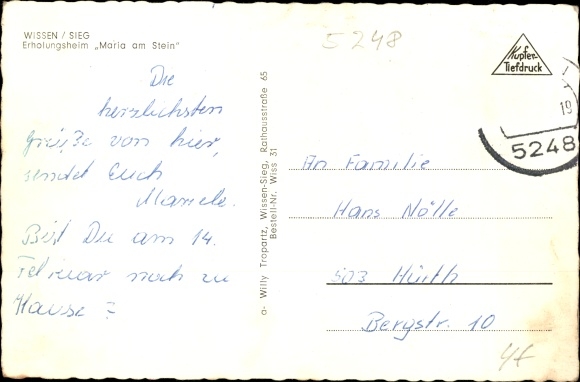 WISSEN / SIEG
Erholungsheim „Maria am Stein"
5248
Kupfer-
Tiefdruck
19
5248
Die
herzlichsten
Grüße von hier,
sendet Euch
Bist Du am 14.
Februar noch zu
Hause?
a- Willy Trapartz, Wissen-Sieg, Rathausstraße 65
Bestell-Nr. Wiss 31
An Familie
Hans Nölle
503 Hürth
Bergstr. 10